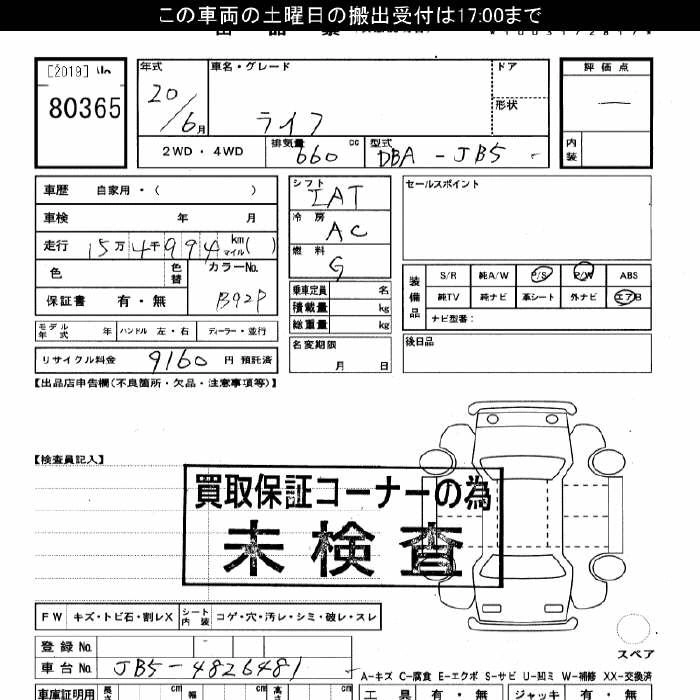 この車両の土曜日の搬出受付は17:00まで
[2019]
80365
年式 車名・グレード ドア 評価点
20/6月 ライフ 形状 —
2WD・4WD 排気量 660 cc 型式 DBA - JB5 内装
車歴 自家用・( )
シフト IAT
セールスポイント
車検 年 月
冷房 AC
走行 15万4千994 km マイル( )
燃料 G
色 色替 カラーNo. B92P
装備品 S/R 純A/W P/S P/W ABS
保証書 有・無
乗車定員 名
純TV 純ナビ 革シート 外ナビ エアB
積載量 kg
ナビ型番:
総重量 kg
モデル年式 年 ハンドル 左・右 ディーラー・並行
名変期限 月 日
後日品
リサイクル料金 9160 円 預託済
【出品店申告欄(不良箇所・欠品・注意事項等)】
【検査員記入】
買取保証コーナーの為
未検査
FW キズ・トビ石・割レX シート内装 コゲ・穴・汚レ・シミ・破レ・スレ
スペア
登録No.
車台No. JB5-4826481
A-キズ C-腐食 E-エクボ S-サビ U-凹ミ W-補修 XX-交換済
車庫証明用 長さ cm 幅 cm 高さ cm 工具 有・無 ジャッキ 有・無